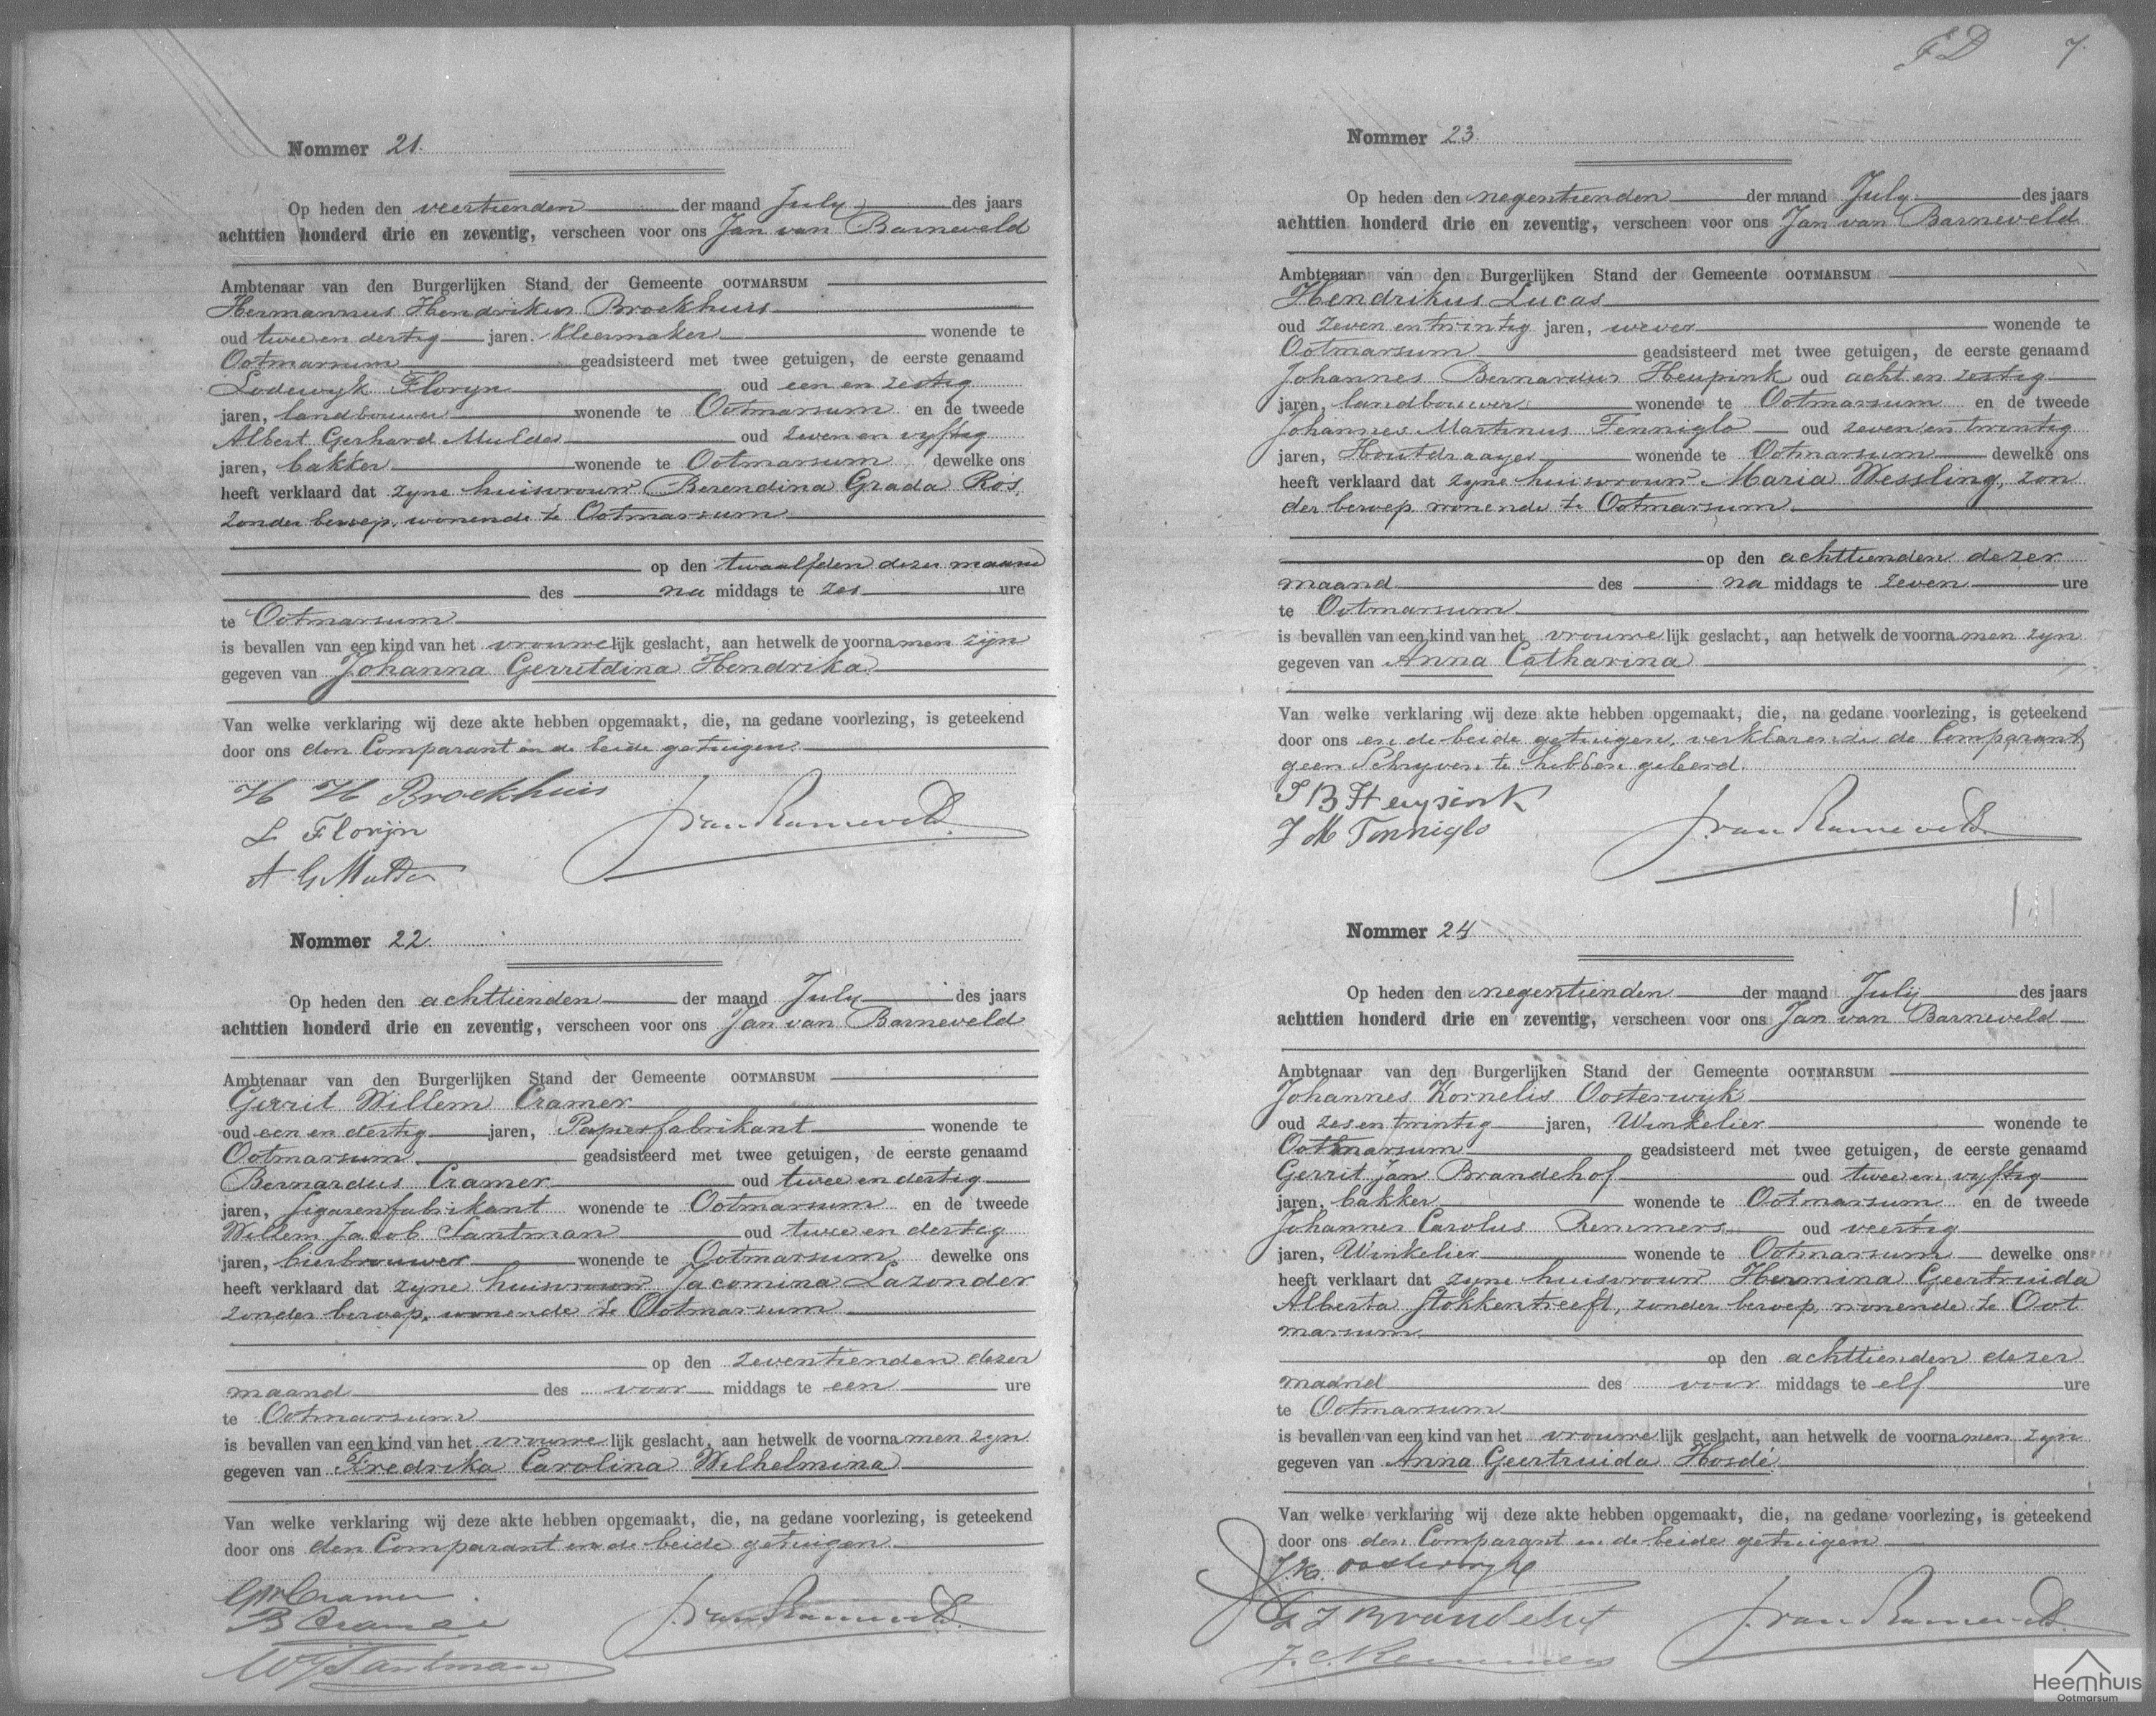 Nommer 21.
Op heden den veertienden der maand July des jaars
achttien honderd drie en zeventig, verscheen voor ons Jan van Barneveld
Ambtenaar van den Burgerlijken Stand der Gemeente OOTMARSUM
Hermannus Hendrikus Broekhuis
oud twee en dertig jaren, Kleermaker wonende te
Ootmarsum geadsisteerd met twee getuigen, de eerste genaamd
Lodewyk Floryn oud een en zestig
jaren, landbouwer wonende te Ootmarsum en de tweede
Albert Gerhard Mulder oud zeven en vyftig
jaren, bakker wonende te Ootmarsum dewelke ons
heeft verklaard dat zyne huisvrouw Berendina Grada Ros,
zonder beroep, wonende te Ootmarsum
op den twaalfden dezer maand
des na middags te zes ure
te Ootmarsum
is bevallen van een kind van het vrouwelijk geslacht, aan hetwelk de voornamen zijn
gegeven van Johanna Gerritdina Hendrika
Van welke verklaring wij deze akte hebben opgemaakt, die, na gedane voorlezing, is geteekend
door ons den Comparant en de beide getuigen.
H H Broekhuis
L Florijn
A G Mulder
J. van Barneveld
Nommer 22.
Op heden den achttienden der maand July des jaars
achttien honderd drie en zeventig, verscheen voor ons Jan van Barneveld
Ambtenaar van den Burgerlijken Stand der Gemeente OOTMARSUM
Gerrit Willem Cramer
oud een en dertig jaren, Papierfabrikant wonende te
Ootmarsum geadsisteerd met twee getuigen, de eerste genaamd
Bernardus Cramer oud twee en dertig
jaren, sigarenfabrikant wonende te Ootmarsum en de tweede
Willem Jacob Santman oud twee en dertig
jaren, bierbrouwer wonende te Ootmarsum dewelke ons
heeft verklaard dat zyne huisvrouw Jacomina Lazonder
zonder beroep, wonende te Ootmarsum
op den zeventienden dezer
maand des voor middags te een ure
te Ootmarsum
is bevallen van een kind van het vrouwelijk geslacht, aan hetwelk de voornamen zyn
gegeven van Fredrika Carolina Wilhelmina
Van welke verklaring wij deze akte hebben opgemaakt, die, na gedane voorlezing, is geteekend
door ons den Comparant en de beide getuigen
GW Cramer
B Cramer
WJ Santman
J. van Barneveld
FD 7
Nommer 23.
Op heden den negentienden der maand July des jaars
achttien honderd drie en zeventig, verscheen voor ons Jan van Barneveld
Ambtenaar van den Burgerlijken Stand der Gemeente OOTMARSUM
Hendrikus Lucas
oud zeven en twintig jaren, wever wonende te
Ootmarsum geadsisteerd met twee getuigen, de eerste genaamd
Johannes Bernardus Heupink oud acht en zestig
jaren, landbouwer wonende te Ootmarsum en de tweede
Johannes Martinus Tenniglo oud zeven en twintig
jaren, Houtdraayer wonende te Ootmarsum dewelke ons
heeft verklaard dat zyne huisvrouw Maria Wessling, zon
der beroep wonende te Ootmarsum
op den achttienden dezer
maand des na middags te zeven ure
te Ootmarsum
is bevallen van een kind van het vrouwelijk geslacht, aan hetwelk de voornamen zyn
gegeven van Anna Catharina
Van welke verklaring wij deze akte hebben opgemaakt, die, na gedane voorlezing, is geteekend
door ons en de beide getuigen, verklarende de Comparant
geen Schryven te hebben geleerd.
J B Heupink
J M Tenniglo
J. van Barneveld
Nommer 24
Op heden den negentienden der maand July des jaars
achttien honderd drie en zeventig, verscheen voor ons Jan van Barneveld
Ambtenaar van den Burgerlijken Stand der Gemeente OOTMARSUM
Johannes Kornelis Oosterwyk
oud zes en twintig jaren, Winkelier wonende te
Ootmarsum geadsisteerd met twee getuigen, de eerste genaamd
Gerrit Jan Brandehof oud twee en vyftig
jaren, bakker wonende te Ootmarsum en de tweede
Johannes Carolus Remmers oud veertig
jaren, Winkelier wonende te Ootmarsum dewelke ons
heeft verklaart dat zyne huisvrouw Hermina Geertruida
Alberta Stokkentreeft, zonder beroep, wonende te Oot
marsum
op den achttienden dezer
maand des voor middags te elf ure
te Ootmarsum
is bevallen van een kind van het vrouwelijk geslacht, aan hetwelk de voornamen zyn
gegeven van Anna Geertruida Hosdé
Van welke verklaring wij deze akte hebben opgemaakt, die, na gedane voorlezing, is geteekend
door ons den Comparant en de beide getuigen
J.K. Oosterwyk
G J Brandehof
J. C. Remmers
J. van Barneveld
Heemhuis
Ootmarsum